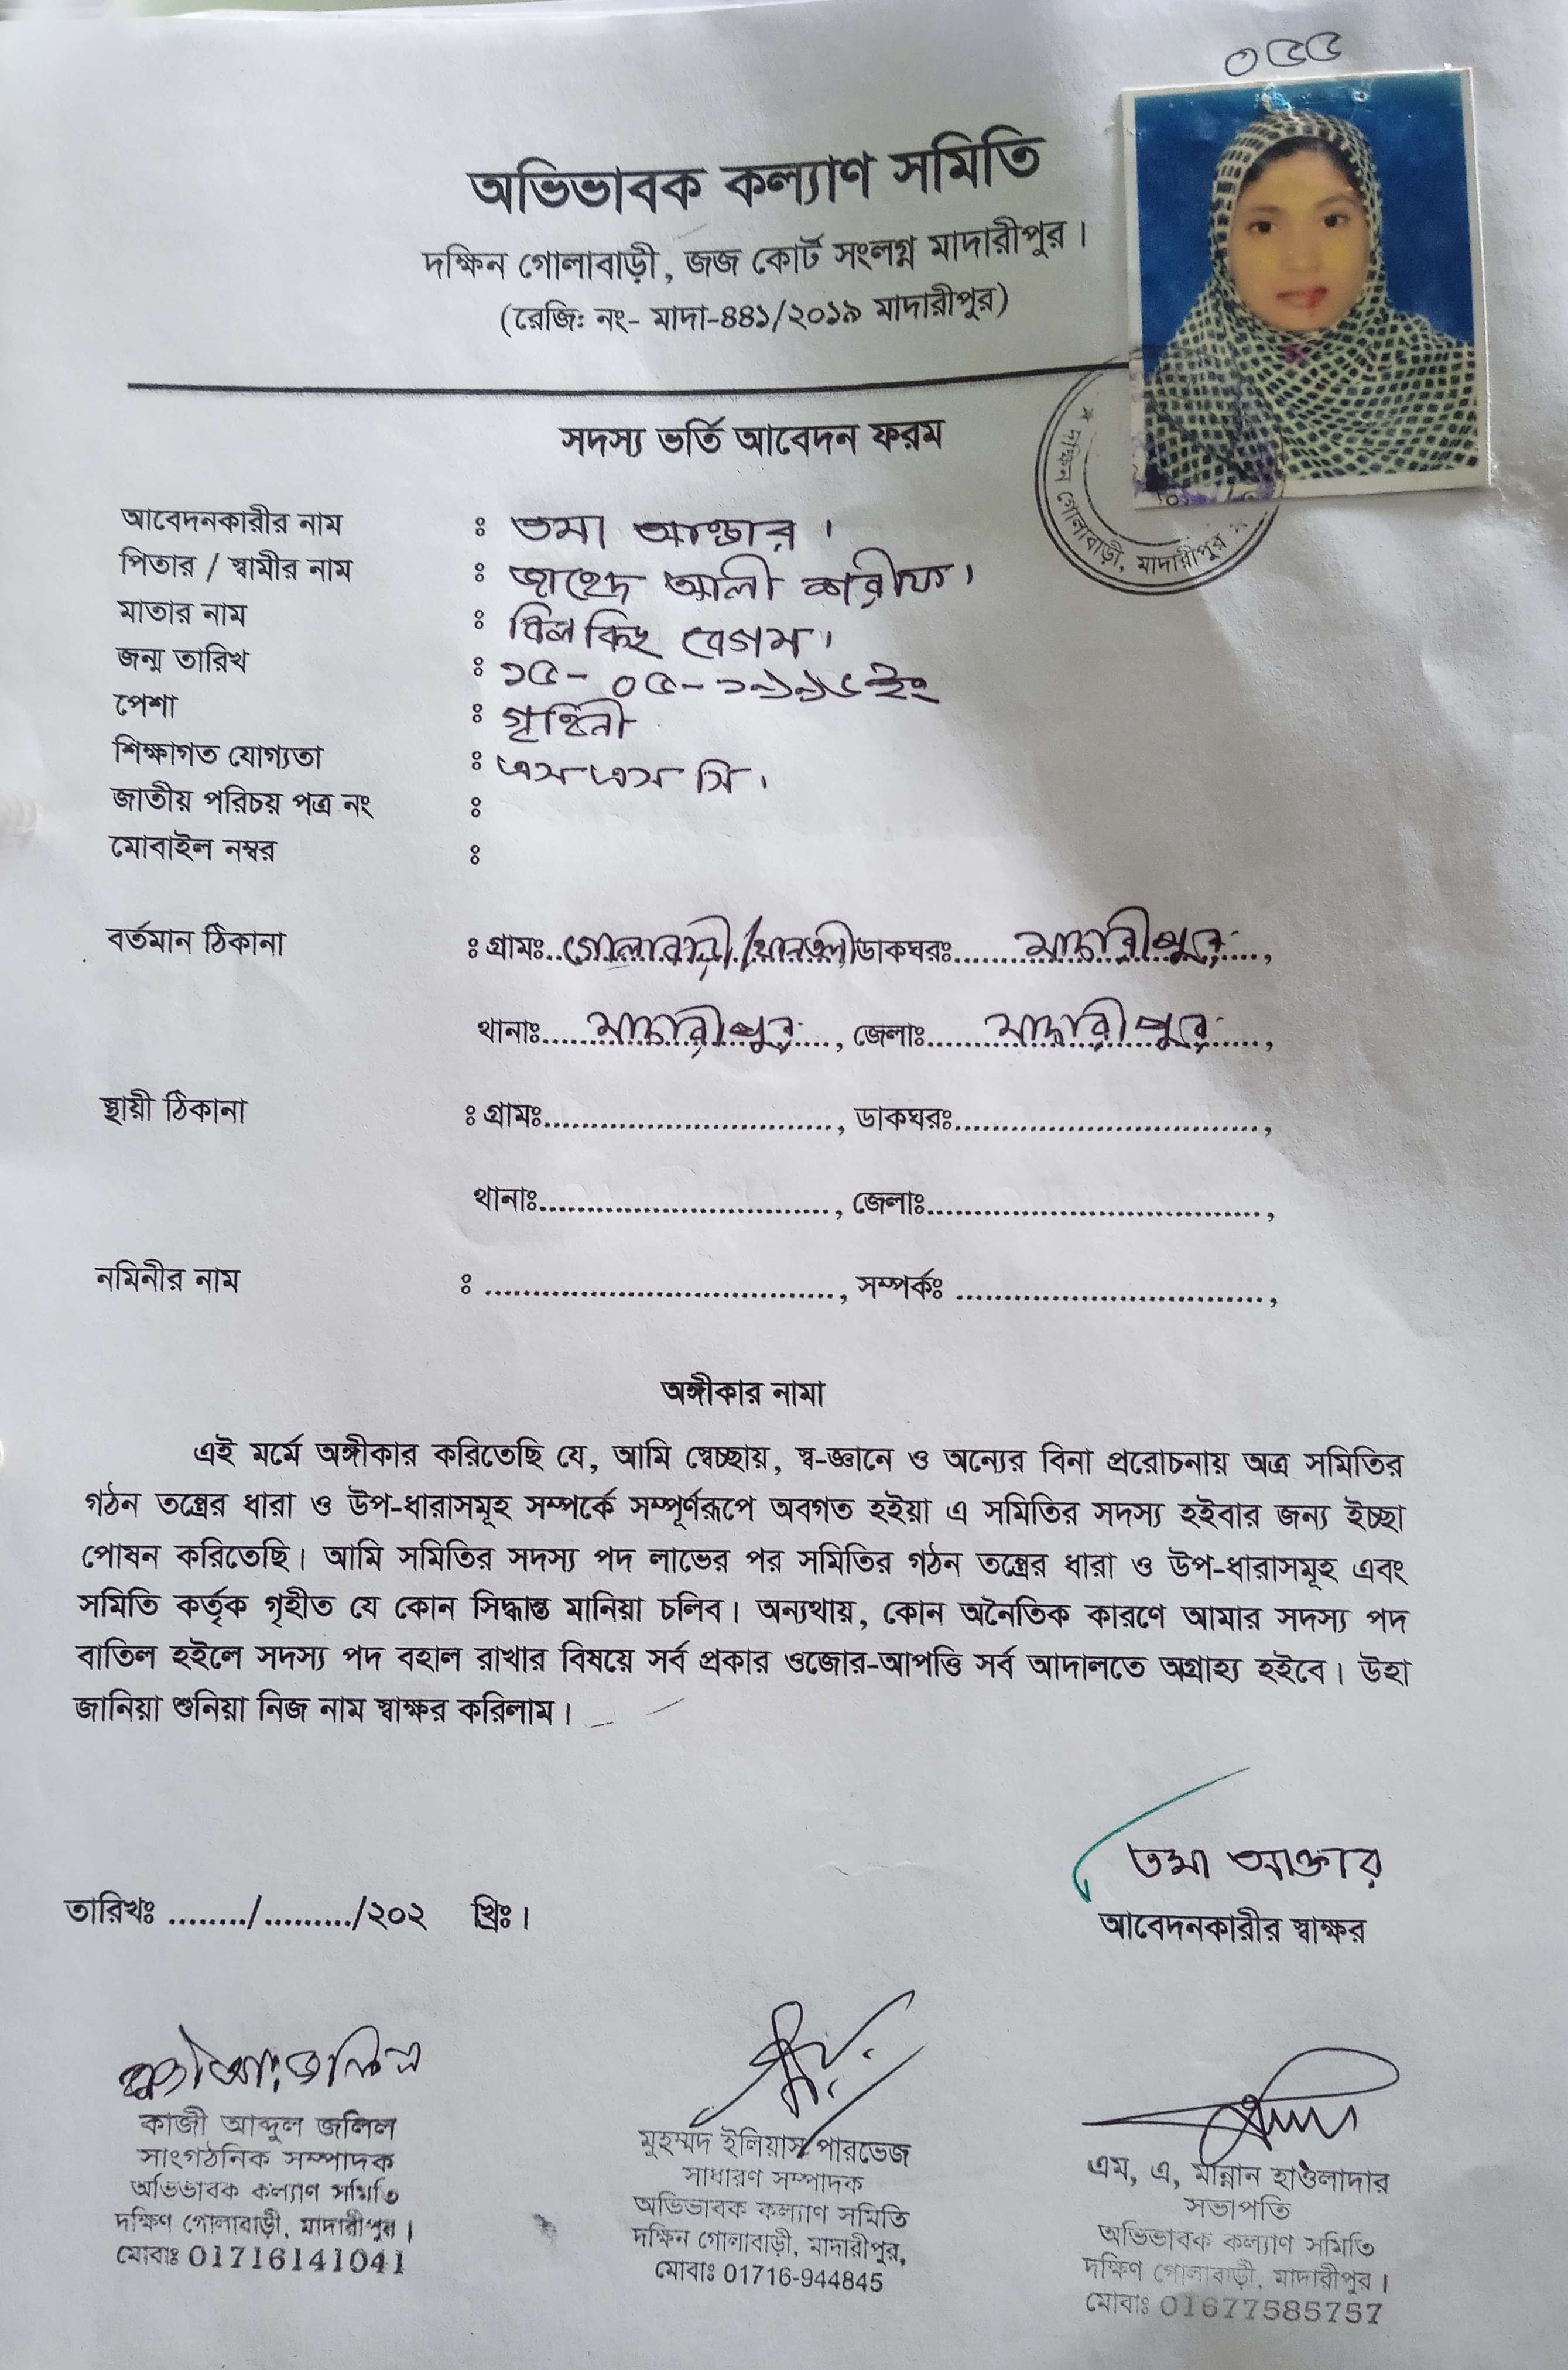 ০৫৫
অভিভাবক কল্যাণ সমিতি
দক্ষিন গোলাবাড়ী, জজ কোর্ট সংলগ্ন মাদারীপুর।
(রেজিঃ নং- মাদা-৪৪১/২০১৯ মাদারীপুর)
★ দক্ষিন গোলাবাড়ী, মাদারীপুর ★
সদস্য ভর্তি আবেদন ফরম
আবেদনকারীর নাম : তমা আক্তার।
পিতার / স্বামীর নাম : জাহেদ আলী শরীফ।
মাতার নাম : বিলকিছ বেগম।
জন্ম তারিখ : ১৫- ০৫- ১৯৯৬ইং
পেশা : গৃহিনী
শিক্ষাগত যোগ্যতা : এস এস সি।
জাতীয় পরিচয় পত্র নং :
মোবাইল নম্বর :
বর্তমান ঠিকানা : গ্রামঃ গোলাবাড়ী/ ডাকঘরঃ মাদারীপুর,
থানাঃ মাদারীপুর, জেলাঃ মাদারীপুর,
স্থায়ী ঠিকানা : গ্রামঃ............................., ডাকঘরঃ..............................,
থানাঃ............................., জেলাঃ.................................,
নমিনীর নাম : ..................................., সম্পর্কঃ ..............................,
অঙ্গীকার নামা
এই মর্মে অঙ্গীকার করিতেছি যে, আমি স্বেচ্ছায়, স্ব-জ্ঞানে ও অন্যের বিনা প্ররোচনায় অত্র সমিতির
গঠন তন্ত্রের ধারা ও উপ-ধারাসমূহ সম্পর্কে সম্পূর্ণরূপে অবগত হইয়া এ সমিতির সদস্য হইবার জন্য ইচ্ছা
পোষন করিতেছি। আমি সমিতির সদস্য পদ লাভের পর সমিতির গঠন তন্ত্রের ধারা ও উপ-ধারাসমূহ এবং
সমিতি কর্তৃক গৃহীত যে কোন সিদ্ধান্ত মানিয়া চলিব। অন্যথায়, কোন অনৈতিক কারণে আমার সদস্য পদ
বাতিল হইলে সদস্য পদ বহাল রাখার বিষয়ে সর্ব প্রকার ওজোর-আপত্তি সর্ব আদালতে অগ্রাহ্য হইবে। উহা
জানিয়া শুনিয়া নিজ নাম স্বাক্ষর করিলাম।
তমা আক্তার
তারিখঃ ......../........./২০২ খ্রিঃ।
আবেদনকারীর স্বাক্ষর
কাজী আব্দুল জলিল
সাংগঠনিক সম্পাদক
অভিভাবক কল্যাণ সমিতি
দক্ষিণ গোলাবাড়ী, মাদারীপুর।
মোবাঃ 01716141041
মুহম্মদ ইলিয়াস পারভেজ
সাধারণ সম্পাদক
অভিভাবক কল্যাণ সমিতি
দক্ষিন গোলাবাড়ী, মাদারীপুর,
মোবাঃ 01716-944845
এম, এ, মান্নান হাওলাদার
সভাপতি
অভিভাবক কল্যাণ সমিতি
দক্ষিণ গোলাবাড়ী, মাদারীপুর।
মোবাঃ 01677585757